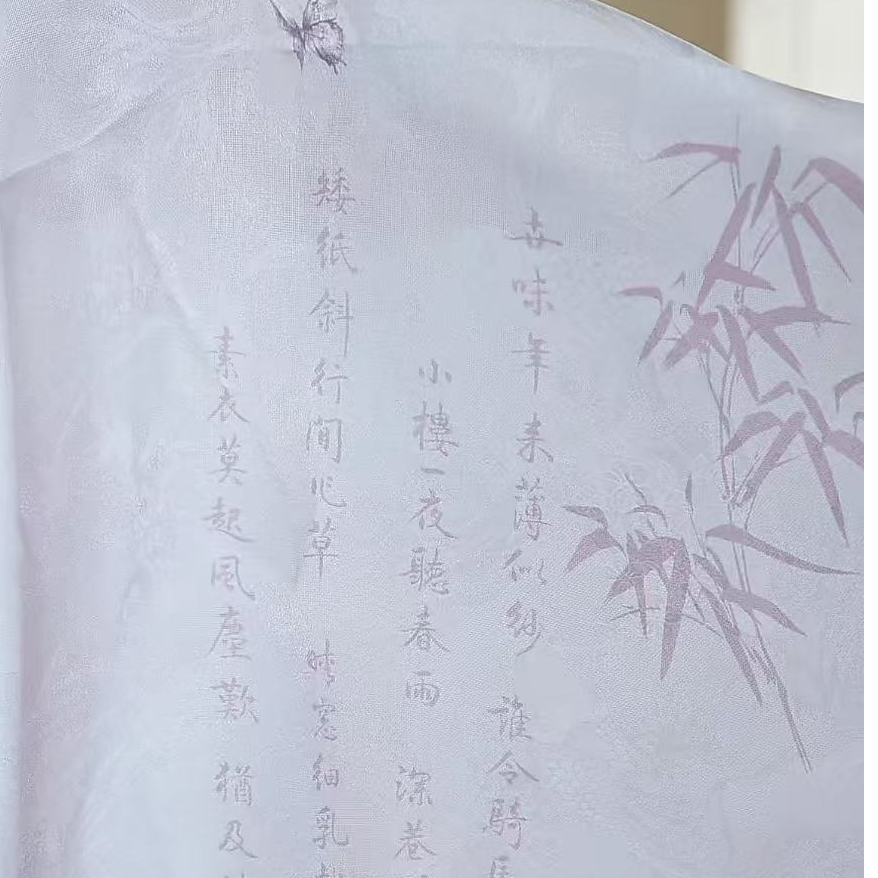 世味年来薄似紗 誰令騎
小樓一夜聽春雨 深巷
矮紙斜行閒作草 晴窓細乳
素衣莫起風塵歎 猶及